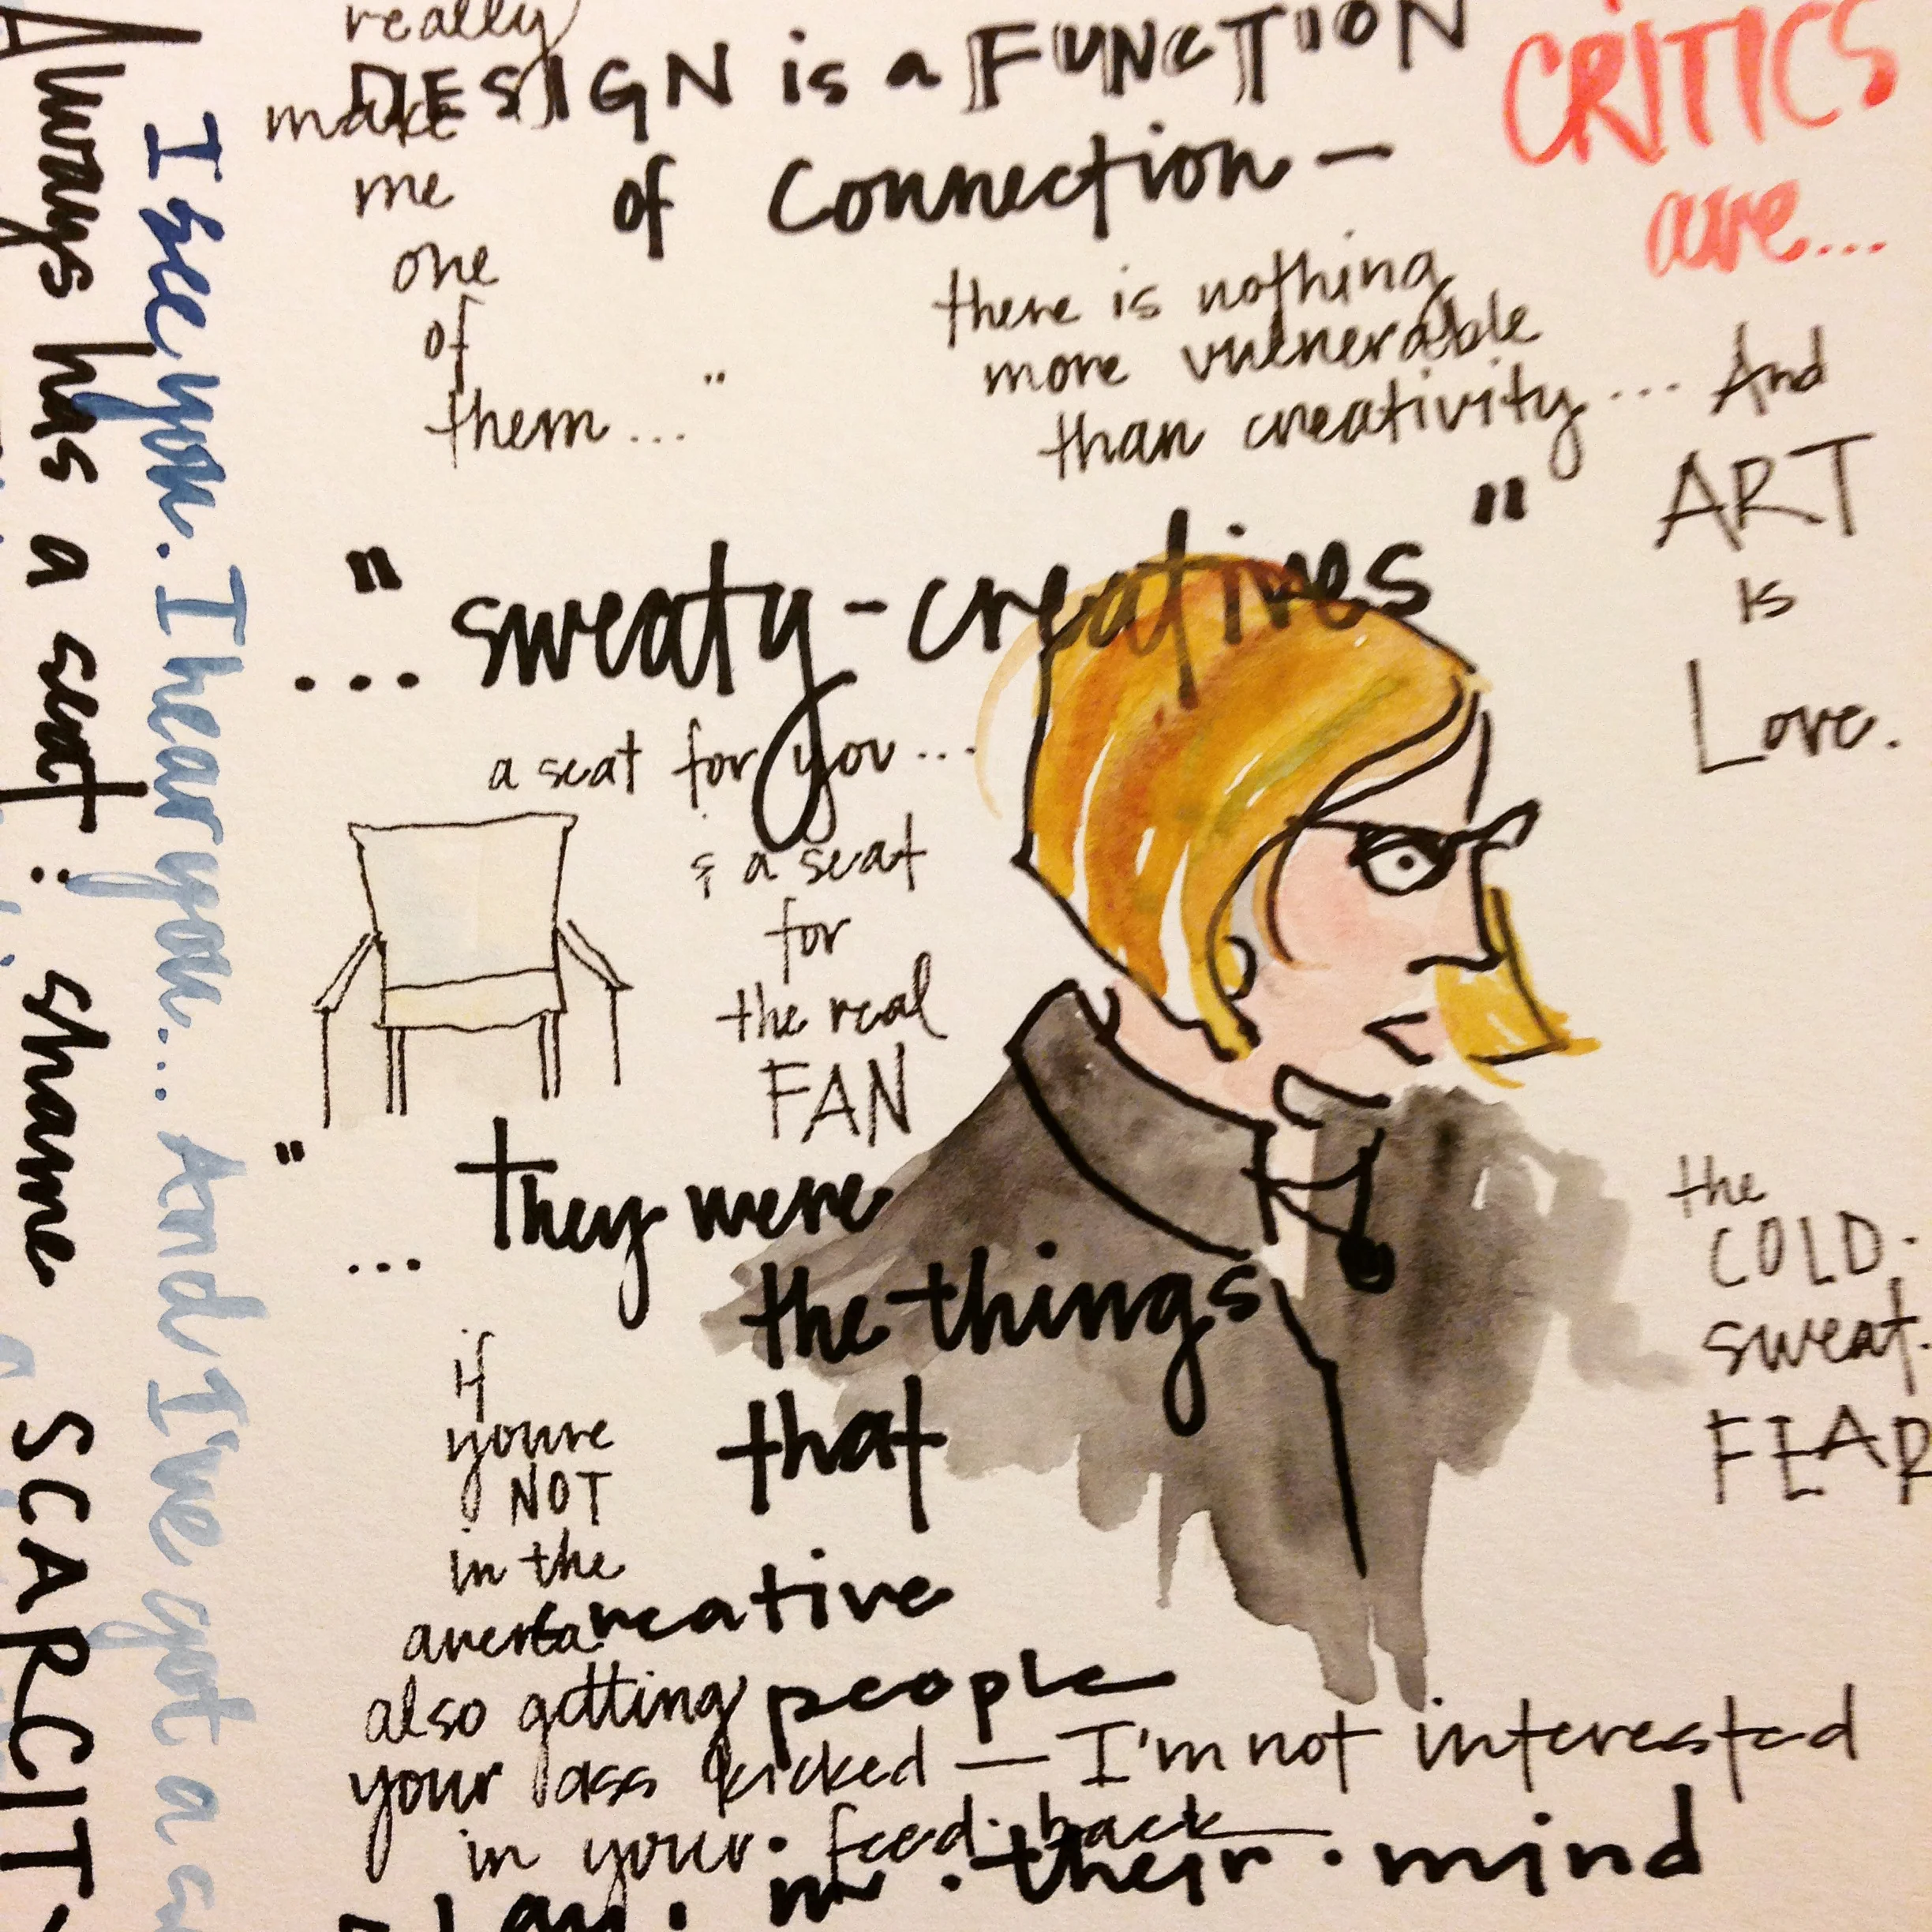 really
make
me
one
of
them... "
DESIGN is a FUNCTION
of Connection —
CRITICS
are...
there is nothing
more vulnerable
than creativity... And
ART
is
Love.
... "sweaty-creatives"
a seat for you...
& a seat
for
the real
FAN
" ... they were
the things
that
creative
people
in · their · mind
the
COLD.
sweat.
FEAR
if
you're
NOT
in the
arena
also getting
your ass kicked — I'm not interested
in your · feed·back
Always has a seat! shame SCARCIT
I see you. I hear you... And I've got a